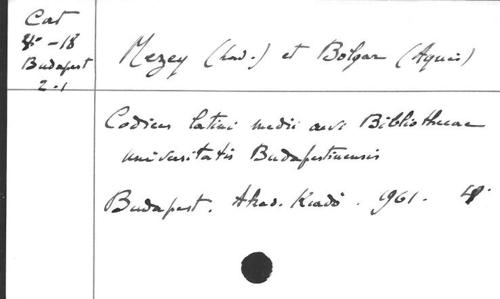 Cat
4° - 18
Budapest
2.1
Mezey (Lad.) et Bolgar (Agnes)
Codices latini medii aevi Bibliothecae
universitatis Budapestinensis
Budapest. Akad. Kiadó. 1961. 4°